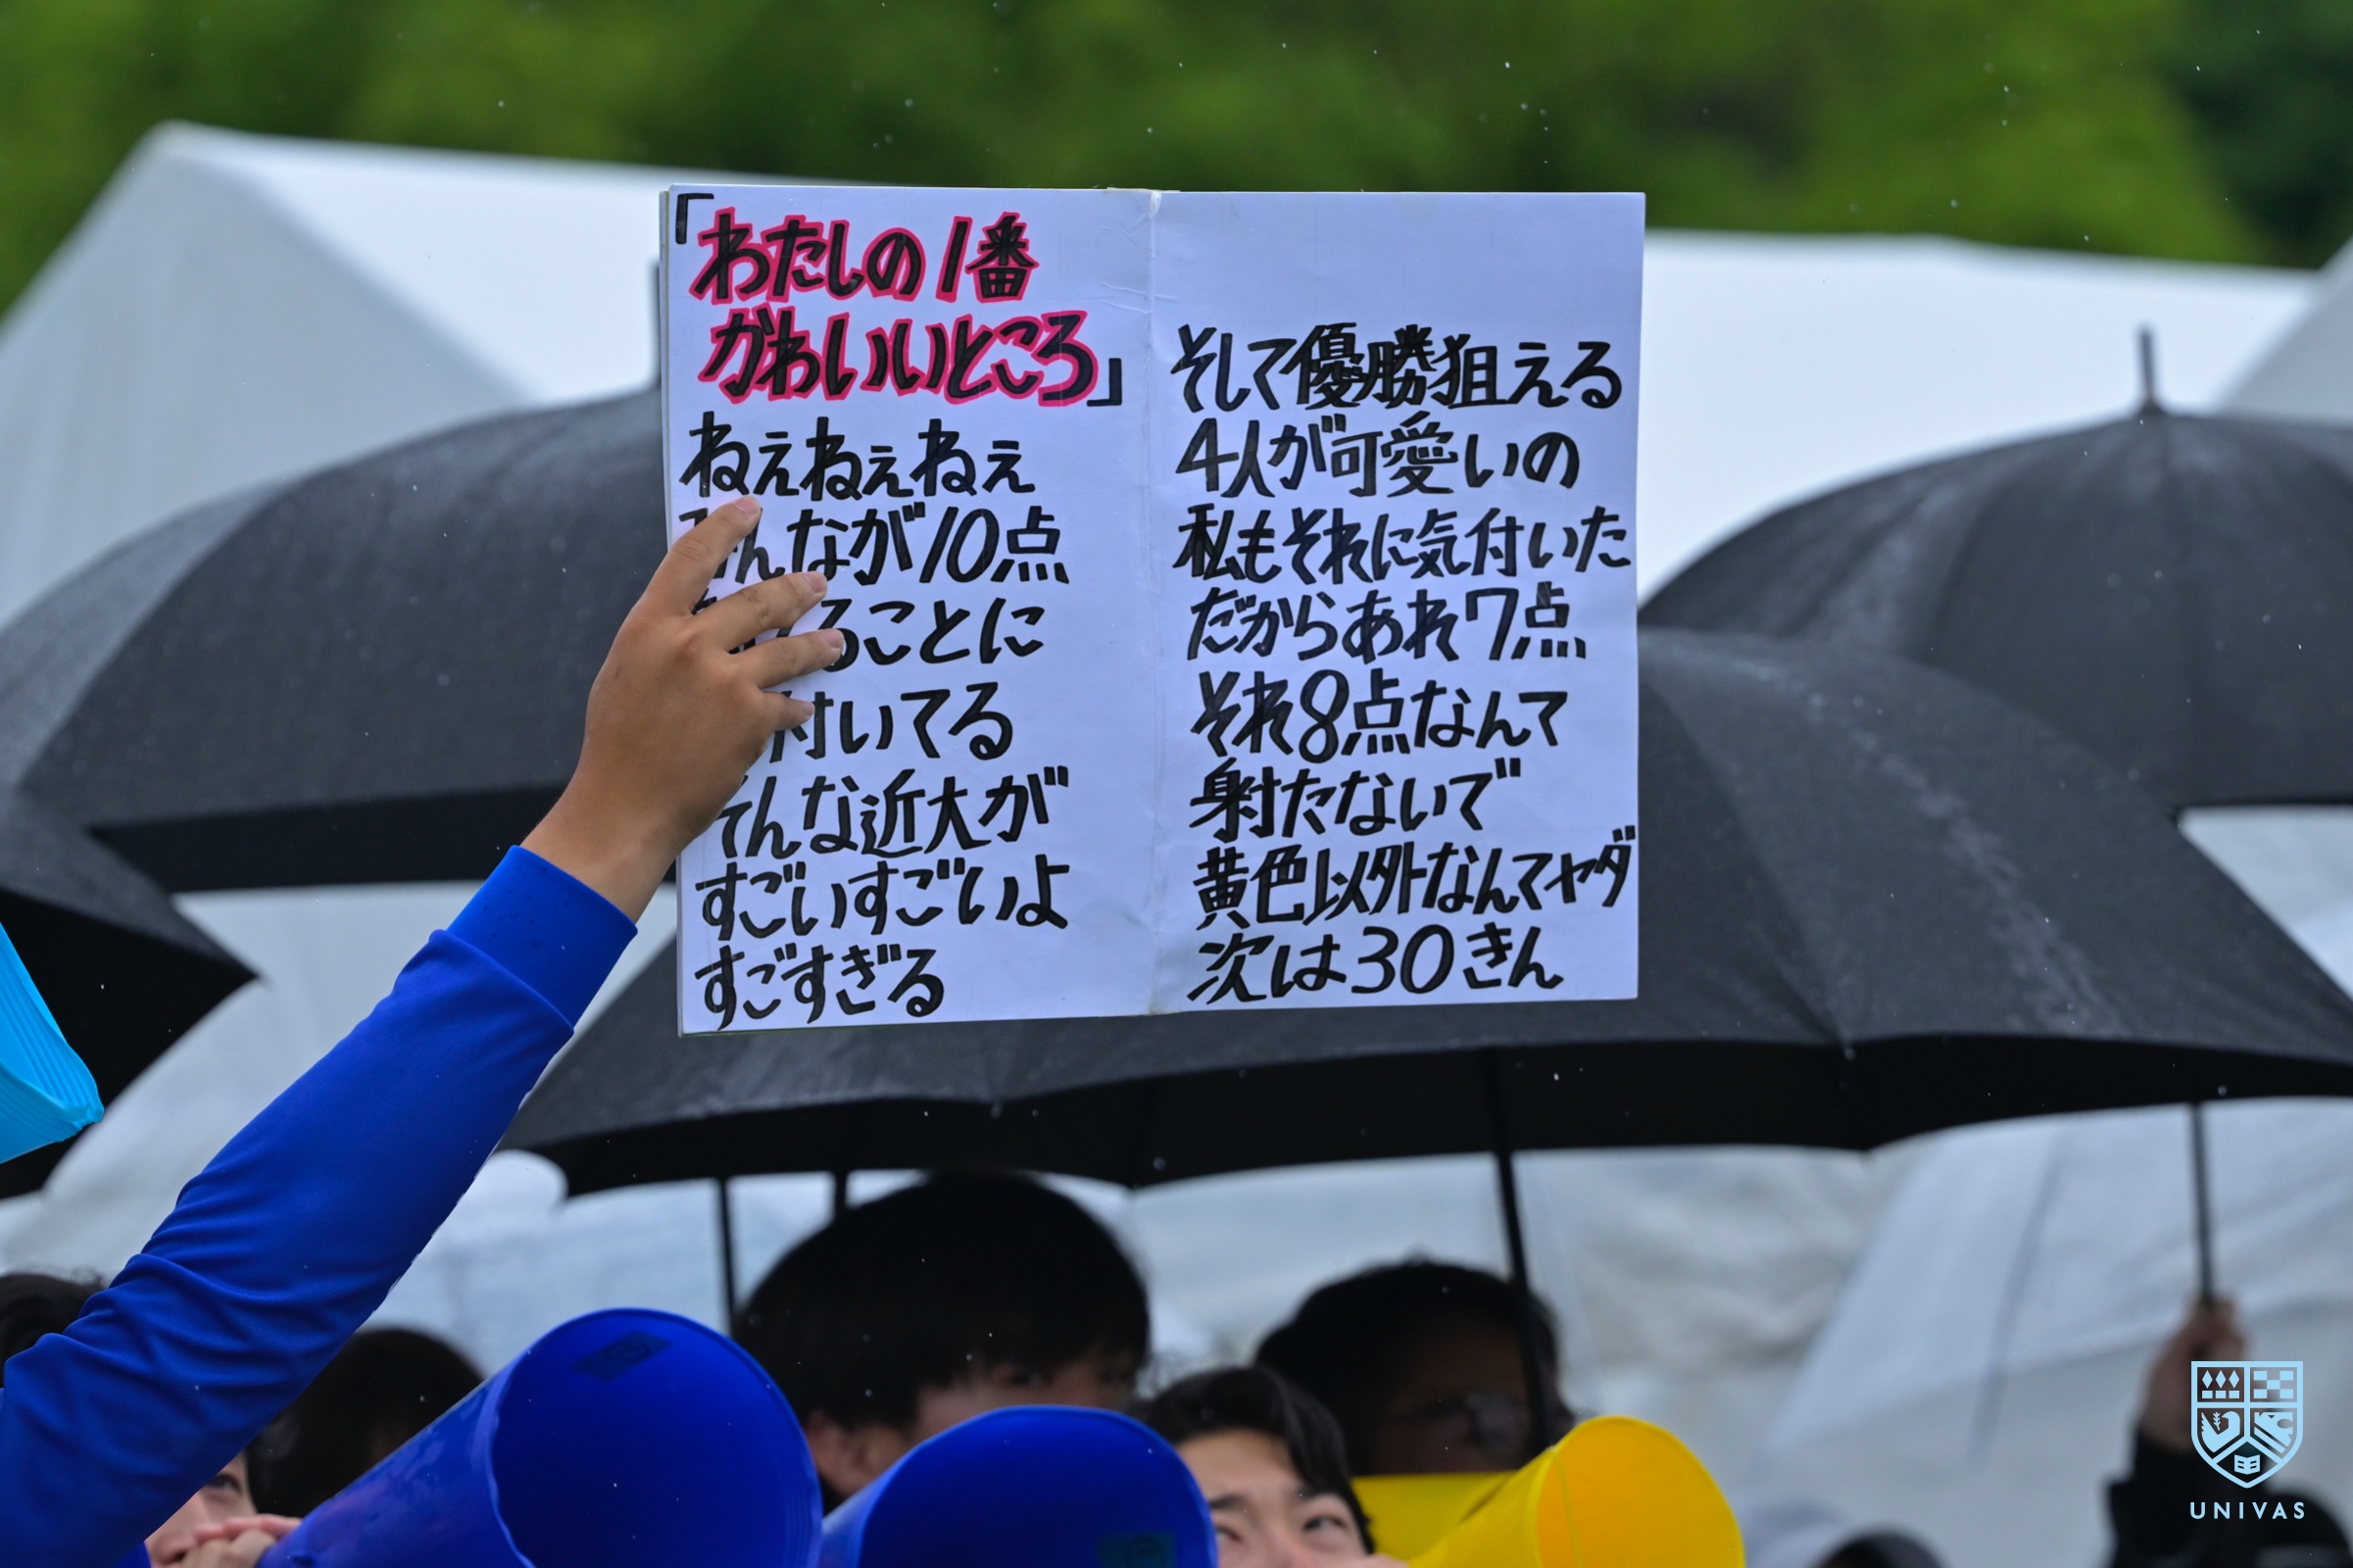 「わたしの1番
かわいいところ」
ねぇねぇねぇ
んなが10点
ることに
付いてる
そんな近大が
すごいすごいよ
すごすぎる
そして優勝狙える
4人が可愛いの
私もそれに気付いた
だからあれ7点
それ8点なんて
射たないで
黄色以外なんてヤダ
次は30きん
UNIVAS